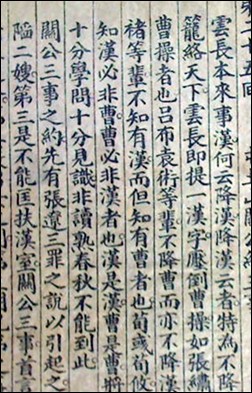 十五回
雲長本來事漢何云降漢降漢云者特為不降
籠絡天下雲長即提一漢字壓倒曹操如張繡
曹操者也呂布袁術等輩不降曹而亦不降漢
褚等輩不知有漢而但知有曹者也荀彧荀攸
知漢必非曹曹必非漢者也漢是漢曹是曹將
十分學問十分見識非讀熟春秋不能到此
關公三事之約先有張遼三罪之說以引起之
陷二嫂第三是不能匡扶漢室關公三事首言